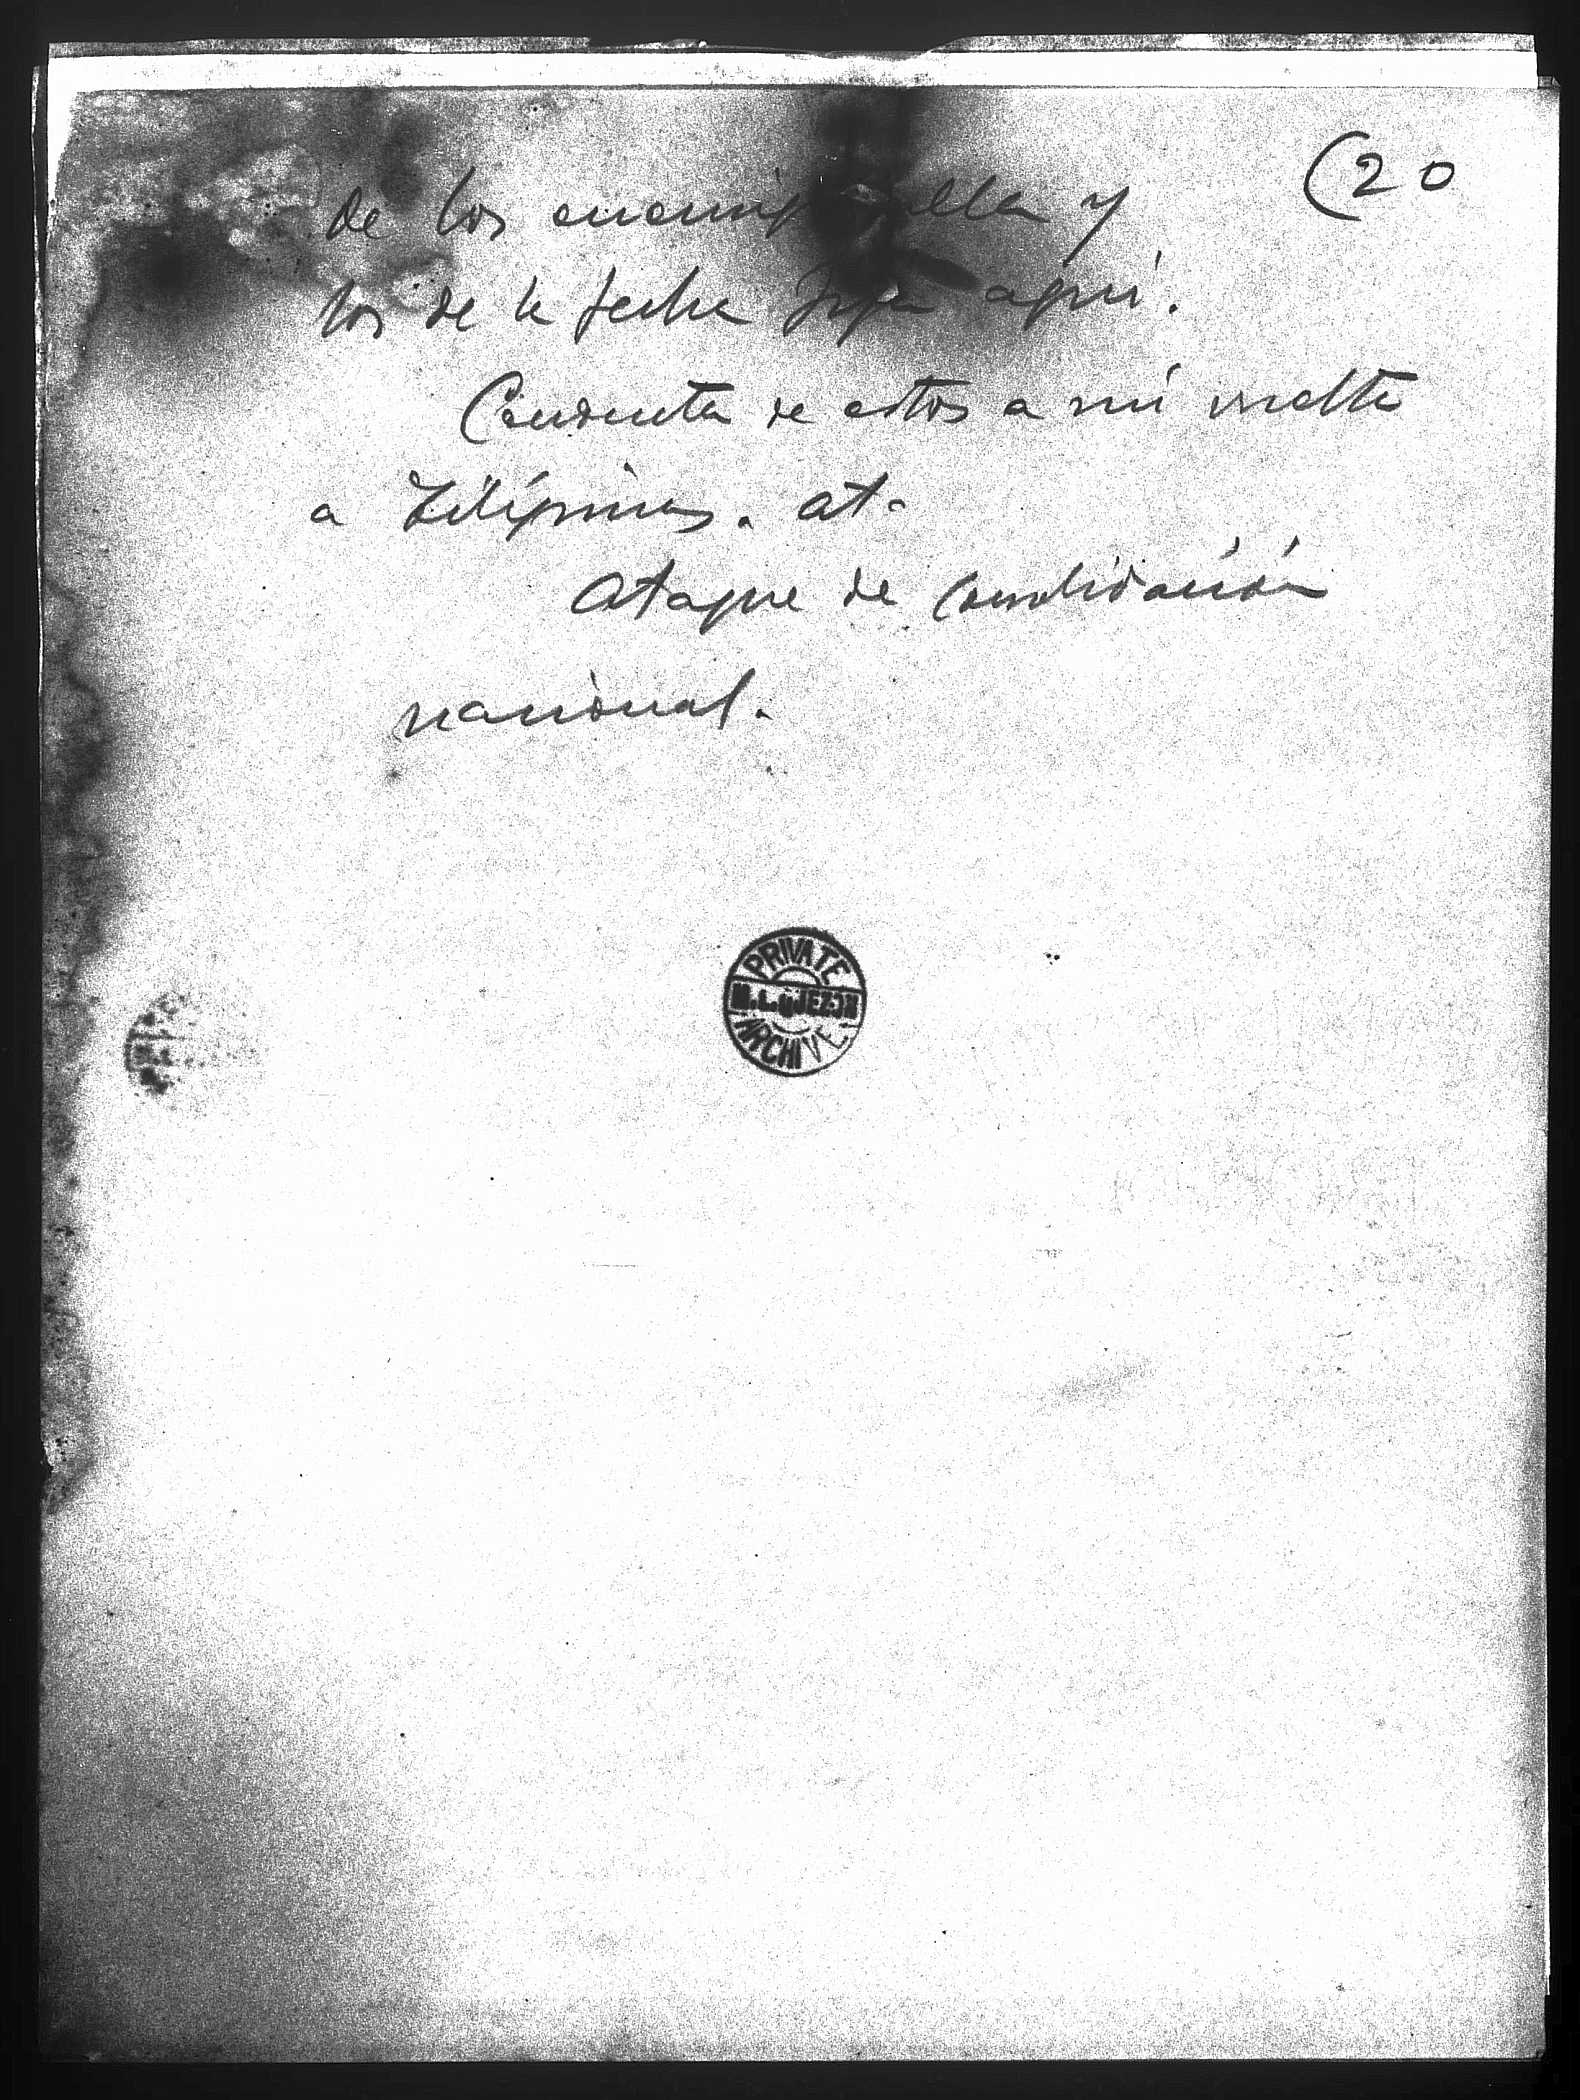 (20
de los enemig ella y
los de la fecha aqui.
Conducta de estos a mi vuelta
a Filipinas. at.
Ataque de Consolidación
nacional.
PRIVATE
M.L.QUEZON
ARCHIVE